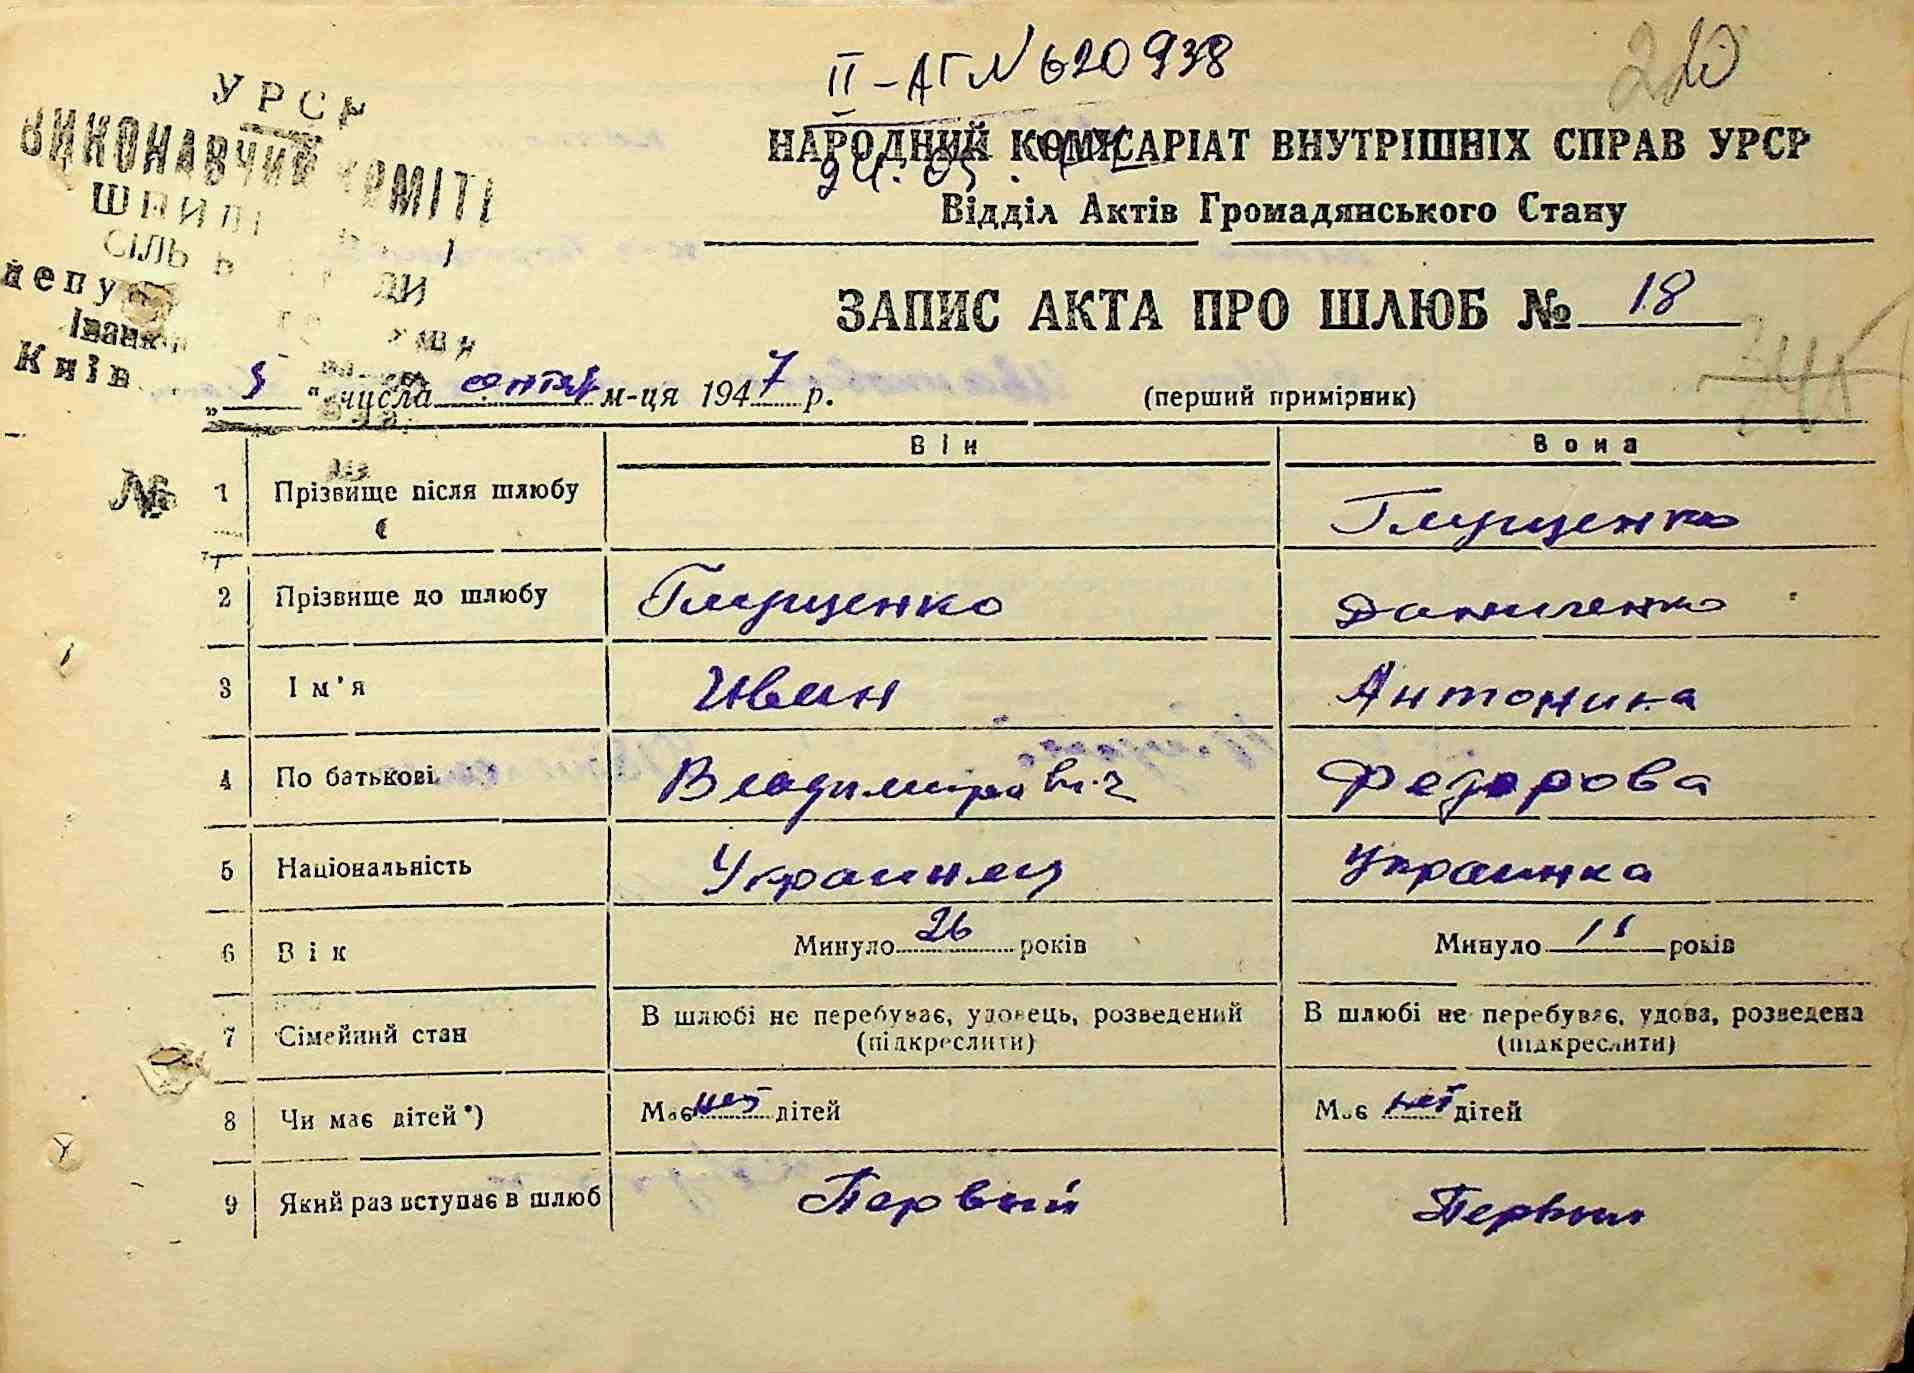 II - АГ № 620938
220
УРСР
ВИКОНАВЧИЙ КОМІТЕ
НАРОДНИЙ КОМІСАРІАТ ВНУТРІШНІХ СПРАВ УРСР
24.05.
Відділ Актів Громадянського Стану
депу
Іванк
Київ
ЗАПИС АКТА ПРО ШЛЮБ № 18
345
„ 5 “ числа сентяб м-ця 1947 р.
(перший примірник)
Він Вона
№
1 Прізвище після шлюбу Глущенко
2 Прізвище до шлюбу Глущенко Даниленко
3 Ім'я Иван Антонина
4 По батькові Владимирович Федорова
5 Національність Украинец Украинка
6 Вік Минуло 26 років Минуло років
7 Сімейний стан В шлюбі не перебуває, удовець, розведений (підкреслити) В шлюбі не перебуває, удова, розведена (підкреслити)
8 Чи має дітей*) Має нет дітей Має нет дітей
9 Який раз вступає в шлюб Первый Первый